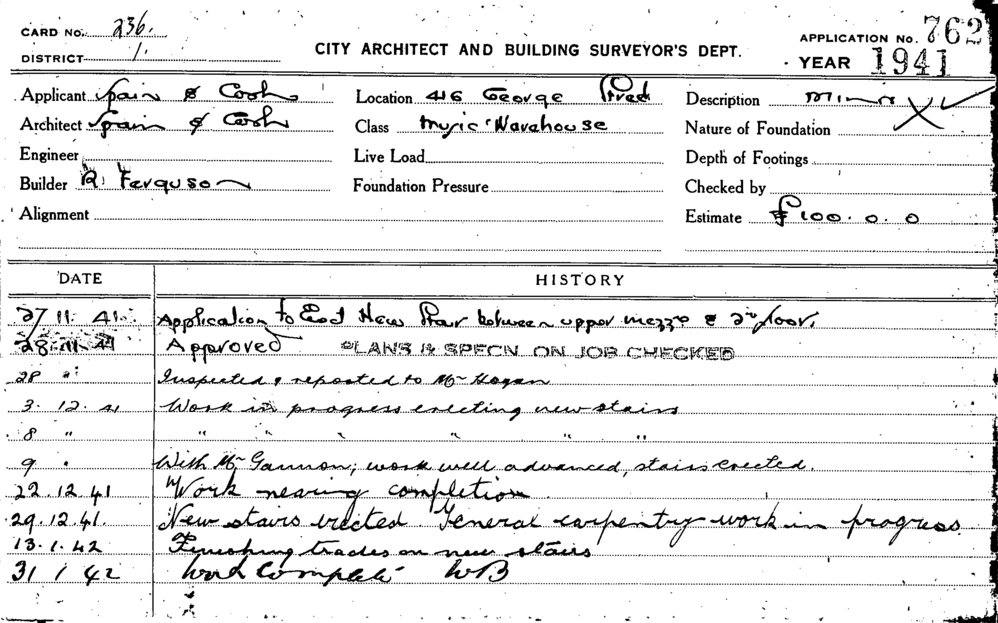 CARD NO. 236.
DISTRICT 1.
CITY ARCHITECT AND BUILDING SURVEYOR'S DEPT.
APPLICATION NO. 762
YEAR 1941
Applicant Spain & Cosh
Location 416 George Street
Description Minor
Architect Spain & Cosh
Class Music Warehouse
Nature of Foundation
Engineer
Live Load
Depth of Footings
Builder R. Ferguson
Foundation Pressure
Checked by
Alignment
Estimate £100. 0. 0
DATE HISTORY
27 11. 41. Application to Erect New Stair between upper mezz & 2nd floor.
28. 11. 41 Approved PLANS & SPECN. ON JOB CHECKED
28 " Inspected & reported to Mr Hogan
3. 12. 41 Work in progress erecting new stairs
8 " " " " " " "
9 " With Mr Gannon; work well advanced, stairs erected.
22. 12. 41 Work nearing completion
29. 12. 41. New stairs erected General carpentry work in progress.
13. 1. 42 Finishing trades on new stairs
31 1 42 Work Complete WB